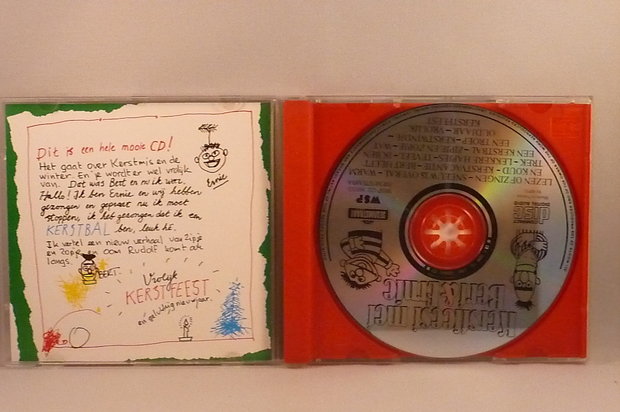 Dit is een hele mooie CD!
Het gaat over Kerstmis en de
winter. En je wordt er wel vrolijk
van. Dat was Bert en nu ik weer.
Hallo! Ik ben Ernie en wij hebben
gezongen en gepraat nu ik moet
stoppen, ik heb gezongen dat ik een
KERSTBAL ben, leuk hè.
Ik vertel een nieuw verhaal van Zippe
en Zoppe en oom Rudolf komt ook
langs.
Ernie
BERT
Vrolijk
KERSTFEEST
en gelukkig nieuwjaar.
Kerstfeest met
Bert & Ernie
WSP
COMPACT
disc
DIGITAL AUDIO
LEZEN OF ZINGEN - SNEEUW IS OVERAL - WARM
EN KOUD -
TREK - LEKKERE HAPJES - TEVEEL KOKEN -
EEN KERSTBAL - ZIPPE EN ZOPPE - WAT
EEN TROEP -
OUDJAAR - VROLIJK
KERSTFEEST